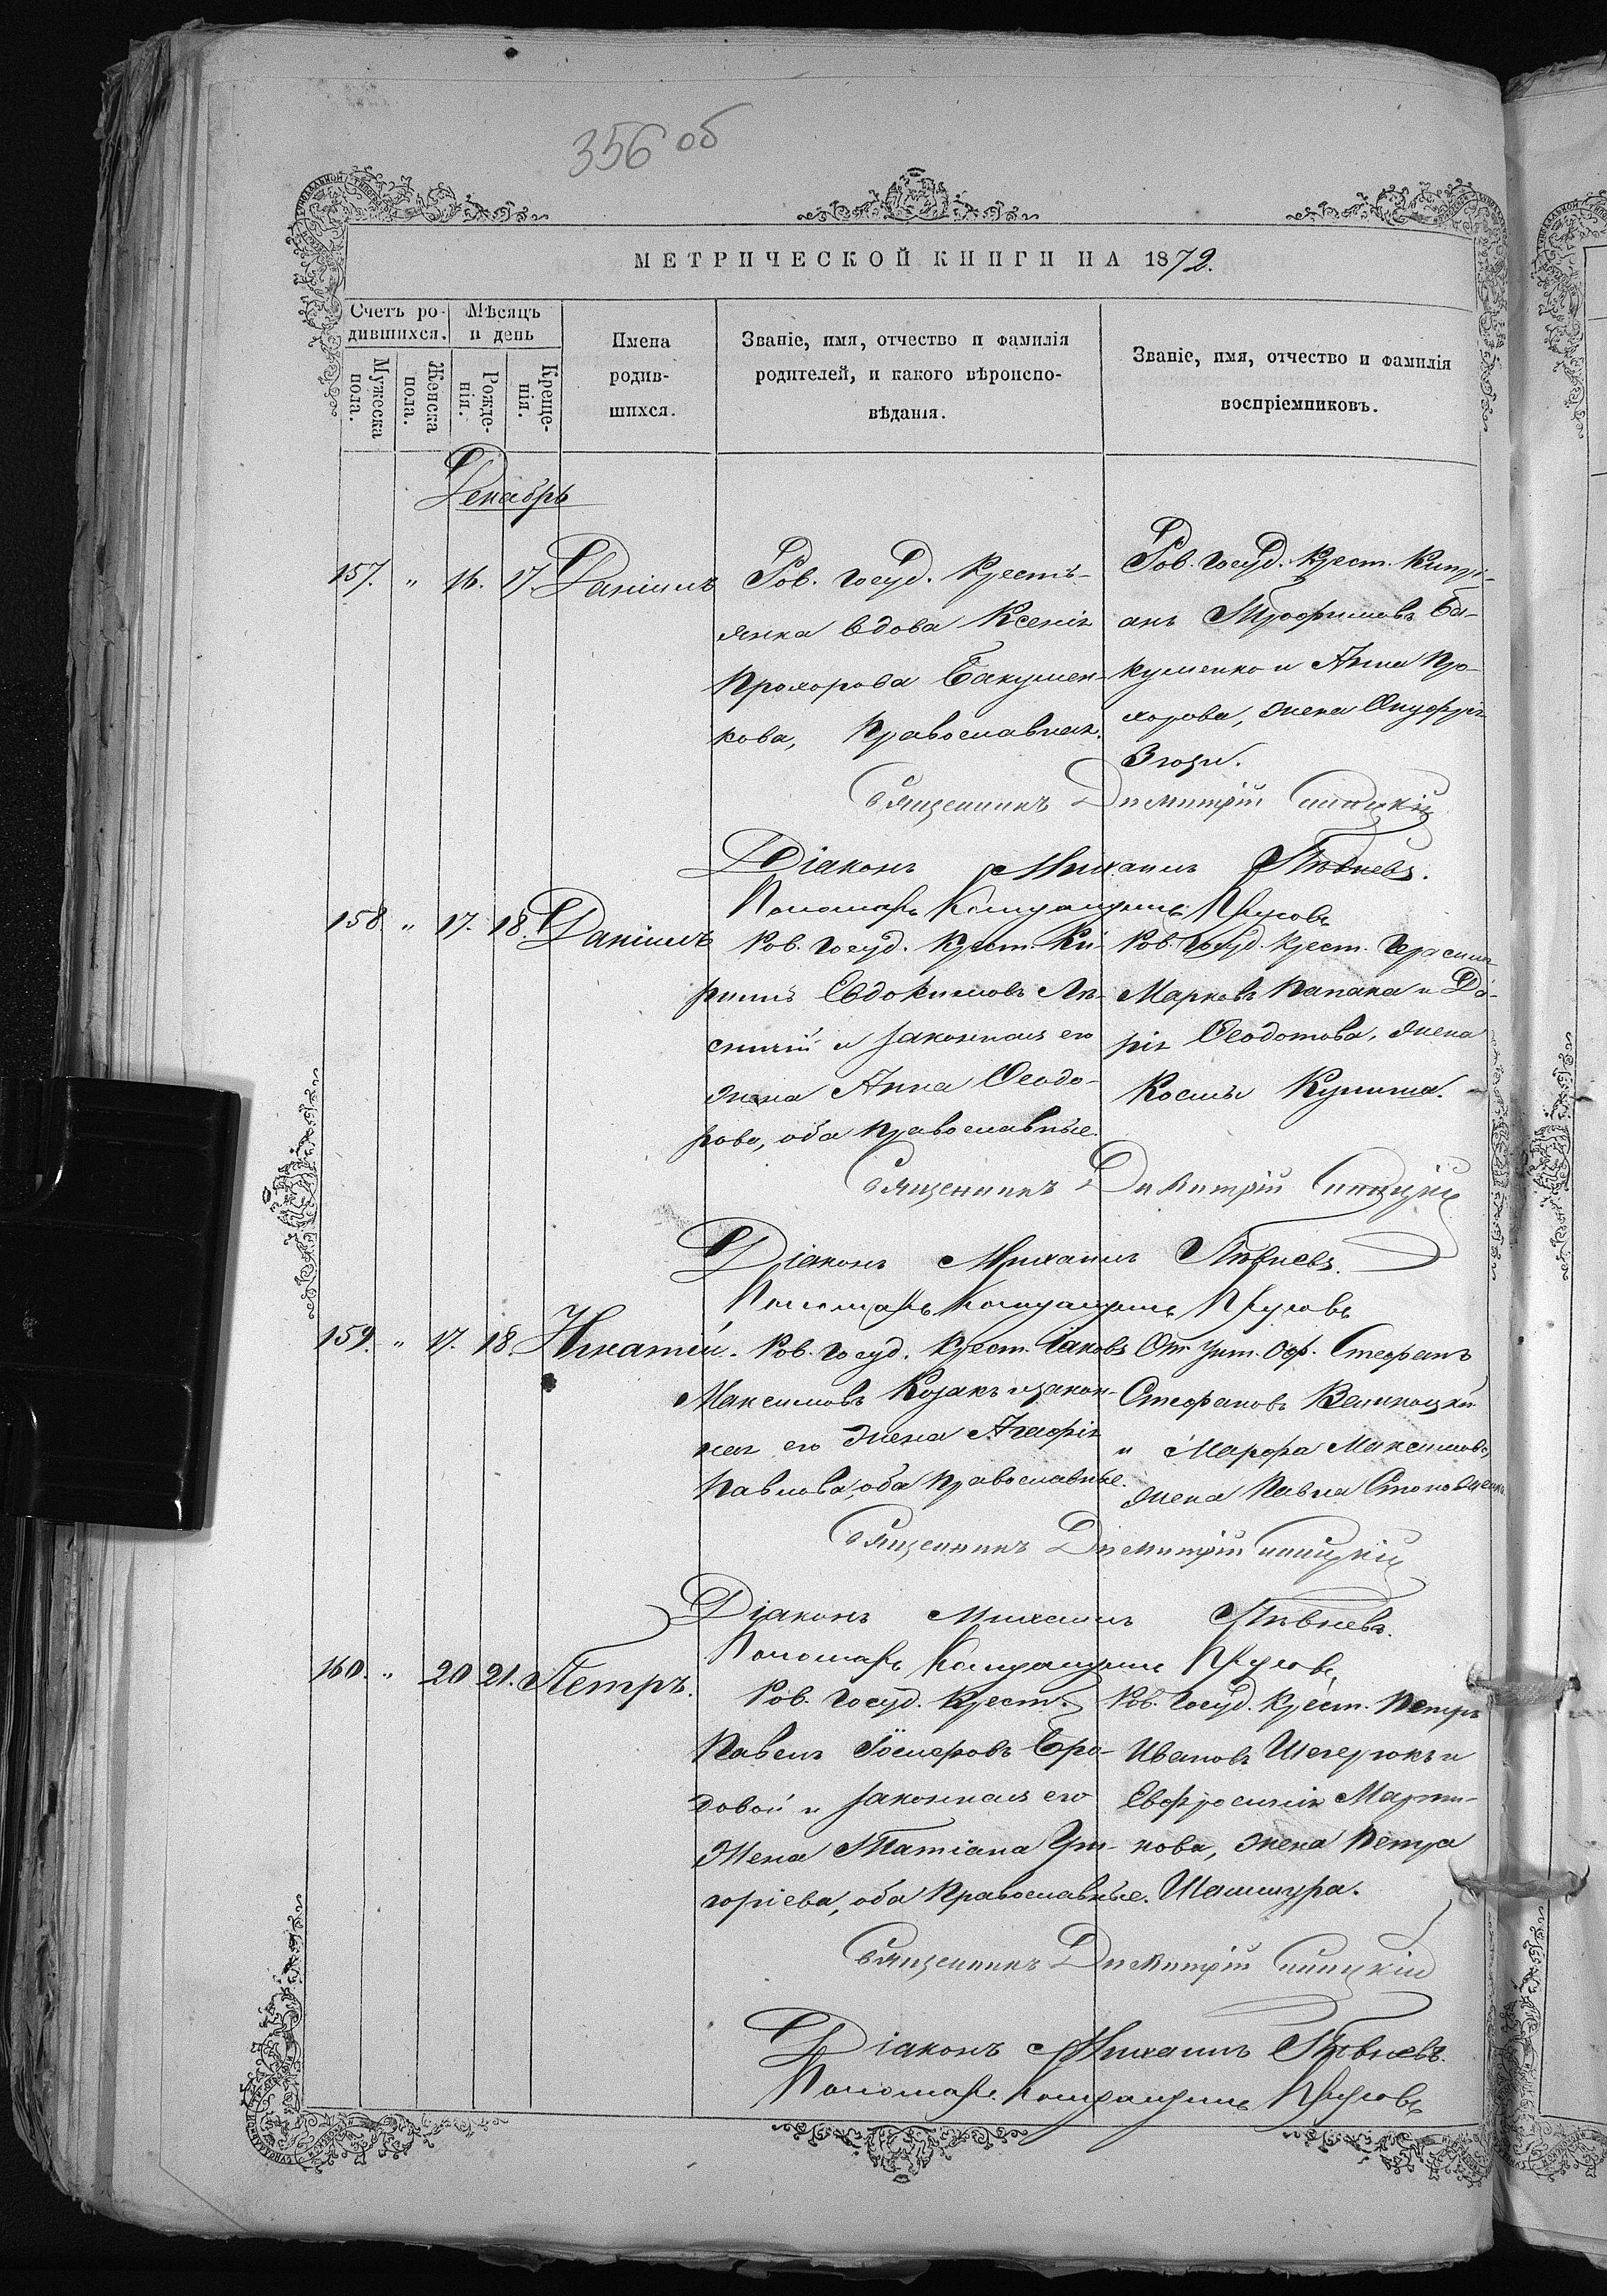 356 об
МЕТРИЧЕСКОЙ КНИГИ НА 1872.
Счетъ ро-
дившихся.
Мѣсяцъ
и день
Мужеска
пола.
Женска
пола.
Рожде-
нія.
Креще-
нія.
Имена
родив-
шихся.
Званіе, имя, отчество и фамилія
родителей, и какого вѣроиспо-
вѣданія.
Званіе, имя, отчество и фамилія
воспріемниковъ.
Декабрь
157. " 16. 17. Даніилъ
Ров. Госуд. Кресть-
янка вдова Ксенія
Прохорова Бакумен-
кова, Православная.
Ров. Госуд. Крест. Кипрі-
анъ Трофимовъ Ба-
куменко и Анна Про-
хорова, жена Онуфрія
Зюзи.
Священникъ Димитрій
Діаконъ Михаилъ Пѣвневъ.
Пономарь
158. " 17. 18. Даніилъ
Ров. Госуд. Крест. Ки-
рилъ Евдокимовъ Лѣ-
сничій и законная его
жена Анна Ѳеодо-
рова, оба Православные.
Ров. Госуд. Крест. Герасимъ
Марковъ Папака и Да-
рія Ѳеодотова, жена
Космы Купина.
Священникъ Димитрій
Діаконъ Михаилъ Пѣвневъ.
Пономарь
159. " 17. 18. Игнатій.
Ров. Госуд. Крест. Іаковъ
Максимовъ Козакъ и закон-
ная его жена Агафія
Павлова, оба Православные.
От. Унт. Оф. Стефанъ
Стефановъ
и Марфа Максимова,
жена Павла
Священникъ Димитрій
Діаконъ Михаилъ Пѣвневъ.
Пономарь
160. " 20 21. Петръ.
Ров. Госуд. Крест.
Павелъ Іосифовъ Бро-
довой и законная его
жена Татіана Гри-
горіева, оба Православные.
Ров. Госуд. Крест. Петръ
Ивановъ Шегерюкъ и
Евфросинія Марти-
нова, жена Петра
Шаммура.
Священникъ Димитрій
Діаконъ Михаилъ Пѣвневъ.
Пономарь